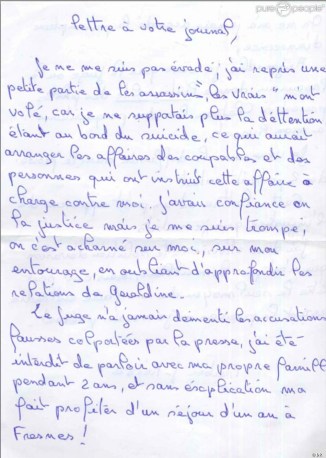 pure people
lettre à votre journal,
Je ne me suis pas évadé, j'ai repris une
petite partie de les assassins", les vrais" m'ont
volé, car je ne supportais plus la détention
étant au bord du suicide, ce qui aurait
arranger les affaires des coupables et des
personnes qui ont instruit cette affaire à
charge contre moi. J'avais confiance en
la justice mais je me suis trompé,
on c'est acharné sur moi, sur mon
entourage, en oubliant d'approfondir les
relations de Géraldine.
Le juge n'a jamais démenti les accusations
fausses colportées par la presse, j'ai été
interdit de parloir avec ma propre famille
pendant 2 ans, et sans explication ma
fait profiter d'un séjour d'un an à
Fresnes !